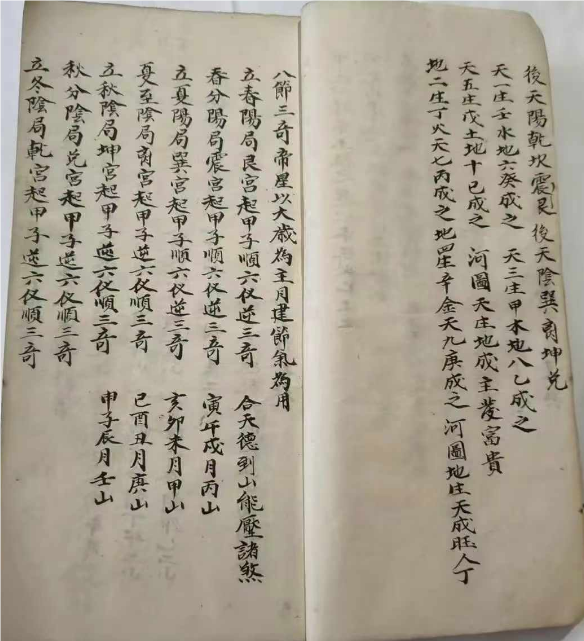 後天陽乾坎震艮 後天陰巽离坤兑
天一生壬水地六癸成之 天三生甲木地八乙成之
天五生戊土地十己成之 河圖天生地成主發富貴
地二生丁火天七丙成之 地四生辛金天九庚成之 河圖地生天成旺人丁
八節三奇帝星以大歲為主月建節氣為用
立春陽局艮宫起甲子順六仪逆三奇 合天德到山能壓諸煞
春分陽局震宫起甲子順六仪逆三奇 寅午戌月丙山
立夏陽局巽宫起甲子順六仪逆三奇 亥卯未月甲山
夏至陰局离宫起甲子逆六仪順三奇 巳酉丑月庚山
立秋陰局坤宫起甲子逆六仪順三奇 申子辰月壬山
秋分陰局兑宫起甲子逆六仪順三奇
立冬陰局乾宫起甲子逆六仪順三奇